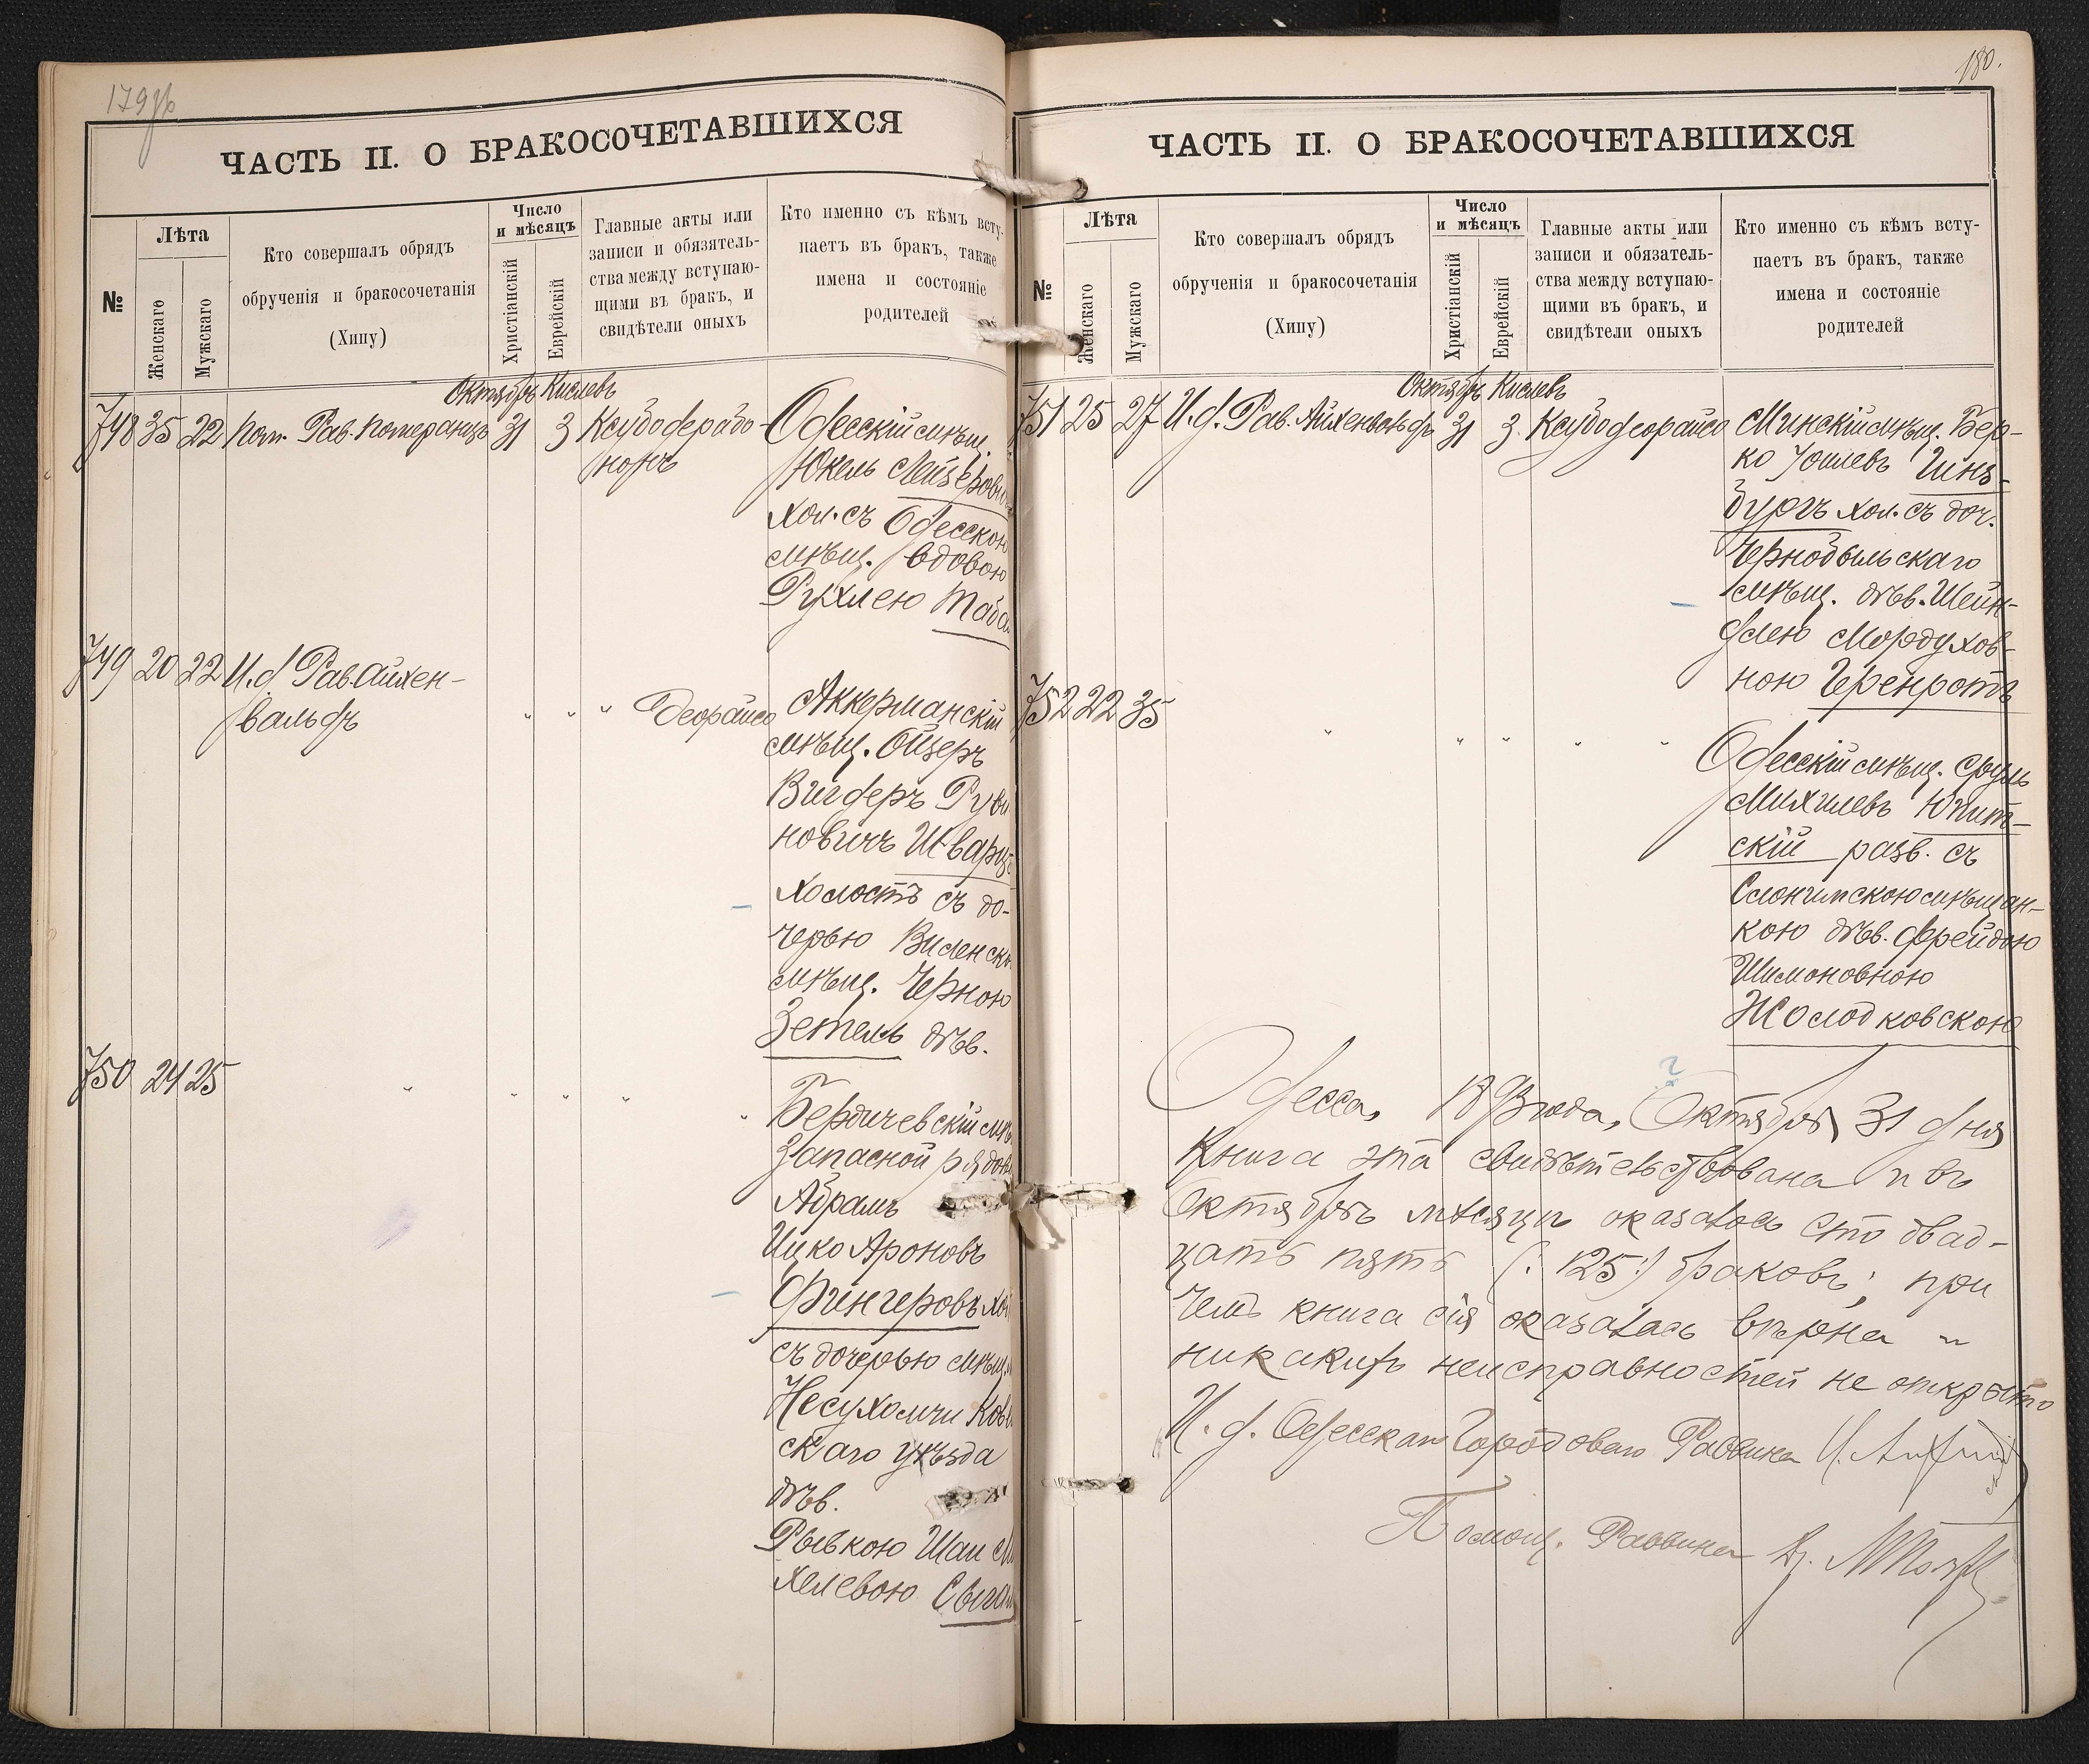 179об
ЧАСТЬ II. О БРАКОСОЧЕТАВШИХСЯ
№
Лѣта
Женскаго
Мужскаго
Кто совершалъ обрядъ
обрученія и бракосочетанія
(Хипу)
Число
и мѣсяцъ
Христіанскій
Еврейскій
Главные акты или
записи и обязатель-
ства между вступаю-
щими въ бракъ, и
свидѣтели оныхъ
Кто именно съ кѣмъ всту-
паетъ въ бракъ, также
имена и состояніе
родителей
Октябрь Кислевъ
748 35 22 Пом. Рав. Померанцъ 31 3
Одесскій мѣщ.
Юкель Лейзерови
хол. съ Одесскою
мѣщ. вдовою
Рухлею Таба
749 20 22 И.д Рав. Айхен-
вальдъ
" " " Деорайсо
Аккерманскій
мѣщ. Ойзеръ
Вигдеръ Руви
новичъ Шварц
холостъ съ до-
черью Виленск
мѣщ. Черною
Зетель дѣв.
750 24 25 " " " " "
Бердичевскій мѣ
Запасной рядов
Абрамъ
Ицко Ароновъ
Фингеровъ хол
съ дочерью мѣщ.
Несухоичи Ков
скаго уѣзда
дѣв.
Рывкою Шаи М
хелевою
180.
ЧАСТЬ II. О БРАКОСОЧЕТАВШИХСЯ
№
Лѣта
Женскаго
Мужскаго
Кто совершалъ обрядъ
обрученія и бракосочетанія
(Хипу)
Число
и мѣсяцъ
Христіанскій
Еврейскій
Главные акты или
записи и обязатель-
ства между вступаю-
щими въ бракъ, и
свидѣтели оныхъ
Кто именно съ кѣмъ всту-
паетъ въ бракъ, также
имена и состояніе
родителей
Октябрь Кислевъ
751 25 27 И.д. Рав. Айхенвальдъ 31 3. Ксубо деорайсо
Минскій мѣщ. Бер-
ко Іошевъ Гинз-
бургъ хол. съ доч.
Чернобыльскаго
мѣщ. дѣв. Шейн-
длею Мордухов-
ною Геренротъ
752 22 35 " " " " "
Одесскій мѣщ. Сруль
Михилевъ Юпит-
скій разв. съ
Слонимскою мѣщан-
кою дѣв. Фрейдою
Шимоновною
Жолодковскою
Одесса, 1893 года, Октября 31 дня
Книга эта свидѣтельствована и въ
Октябрѣ мѣсяцѣ оказалось сто двад-
цать пять (:125:) браковъ; при
чемъ книга сія оказалась вѣрна и
никакихъ неисправностей не открыто
И. д. Одесскаго Городоваго Раввина
Помощ. Раввина